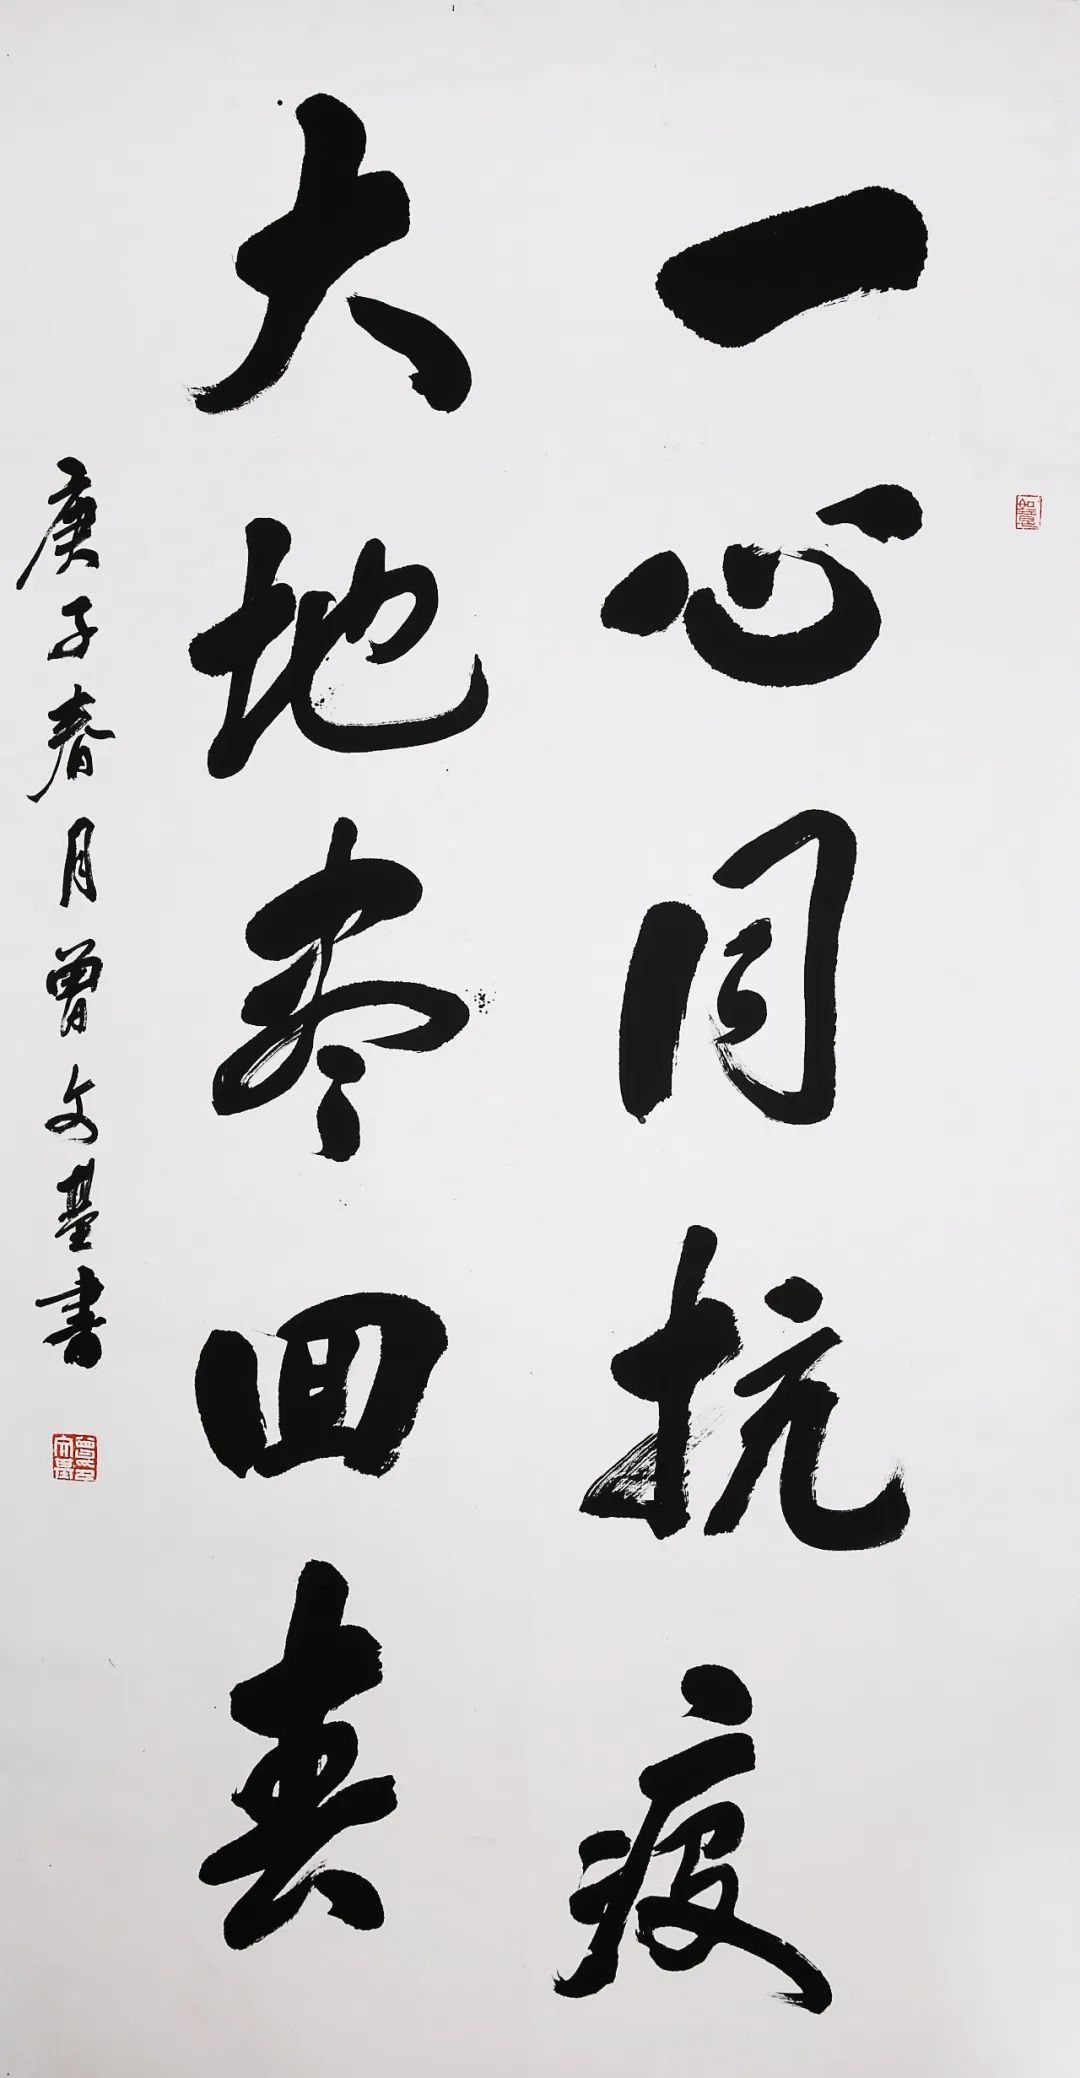 一心同抗疫
大地春回春
庚子春月曾文基書